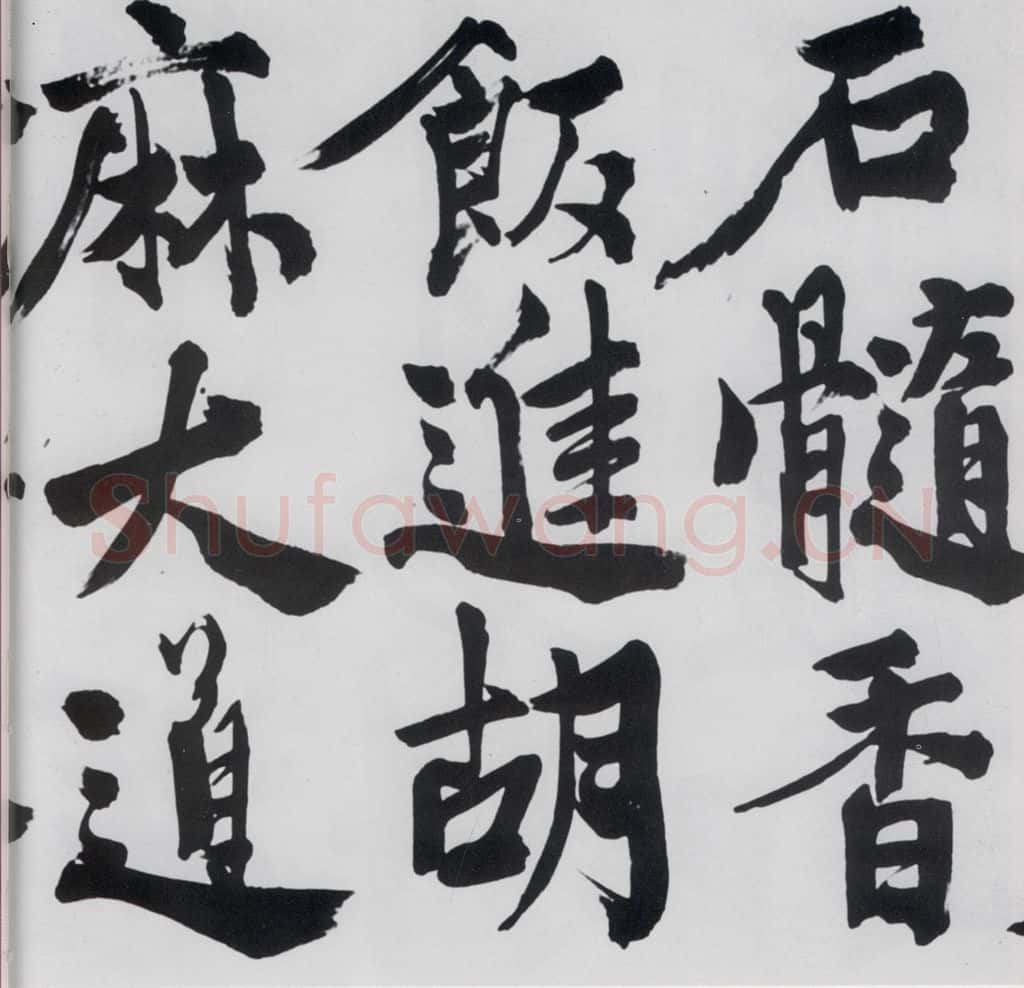 石髓香
飯進胡
麻大道
Shufawang.CN